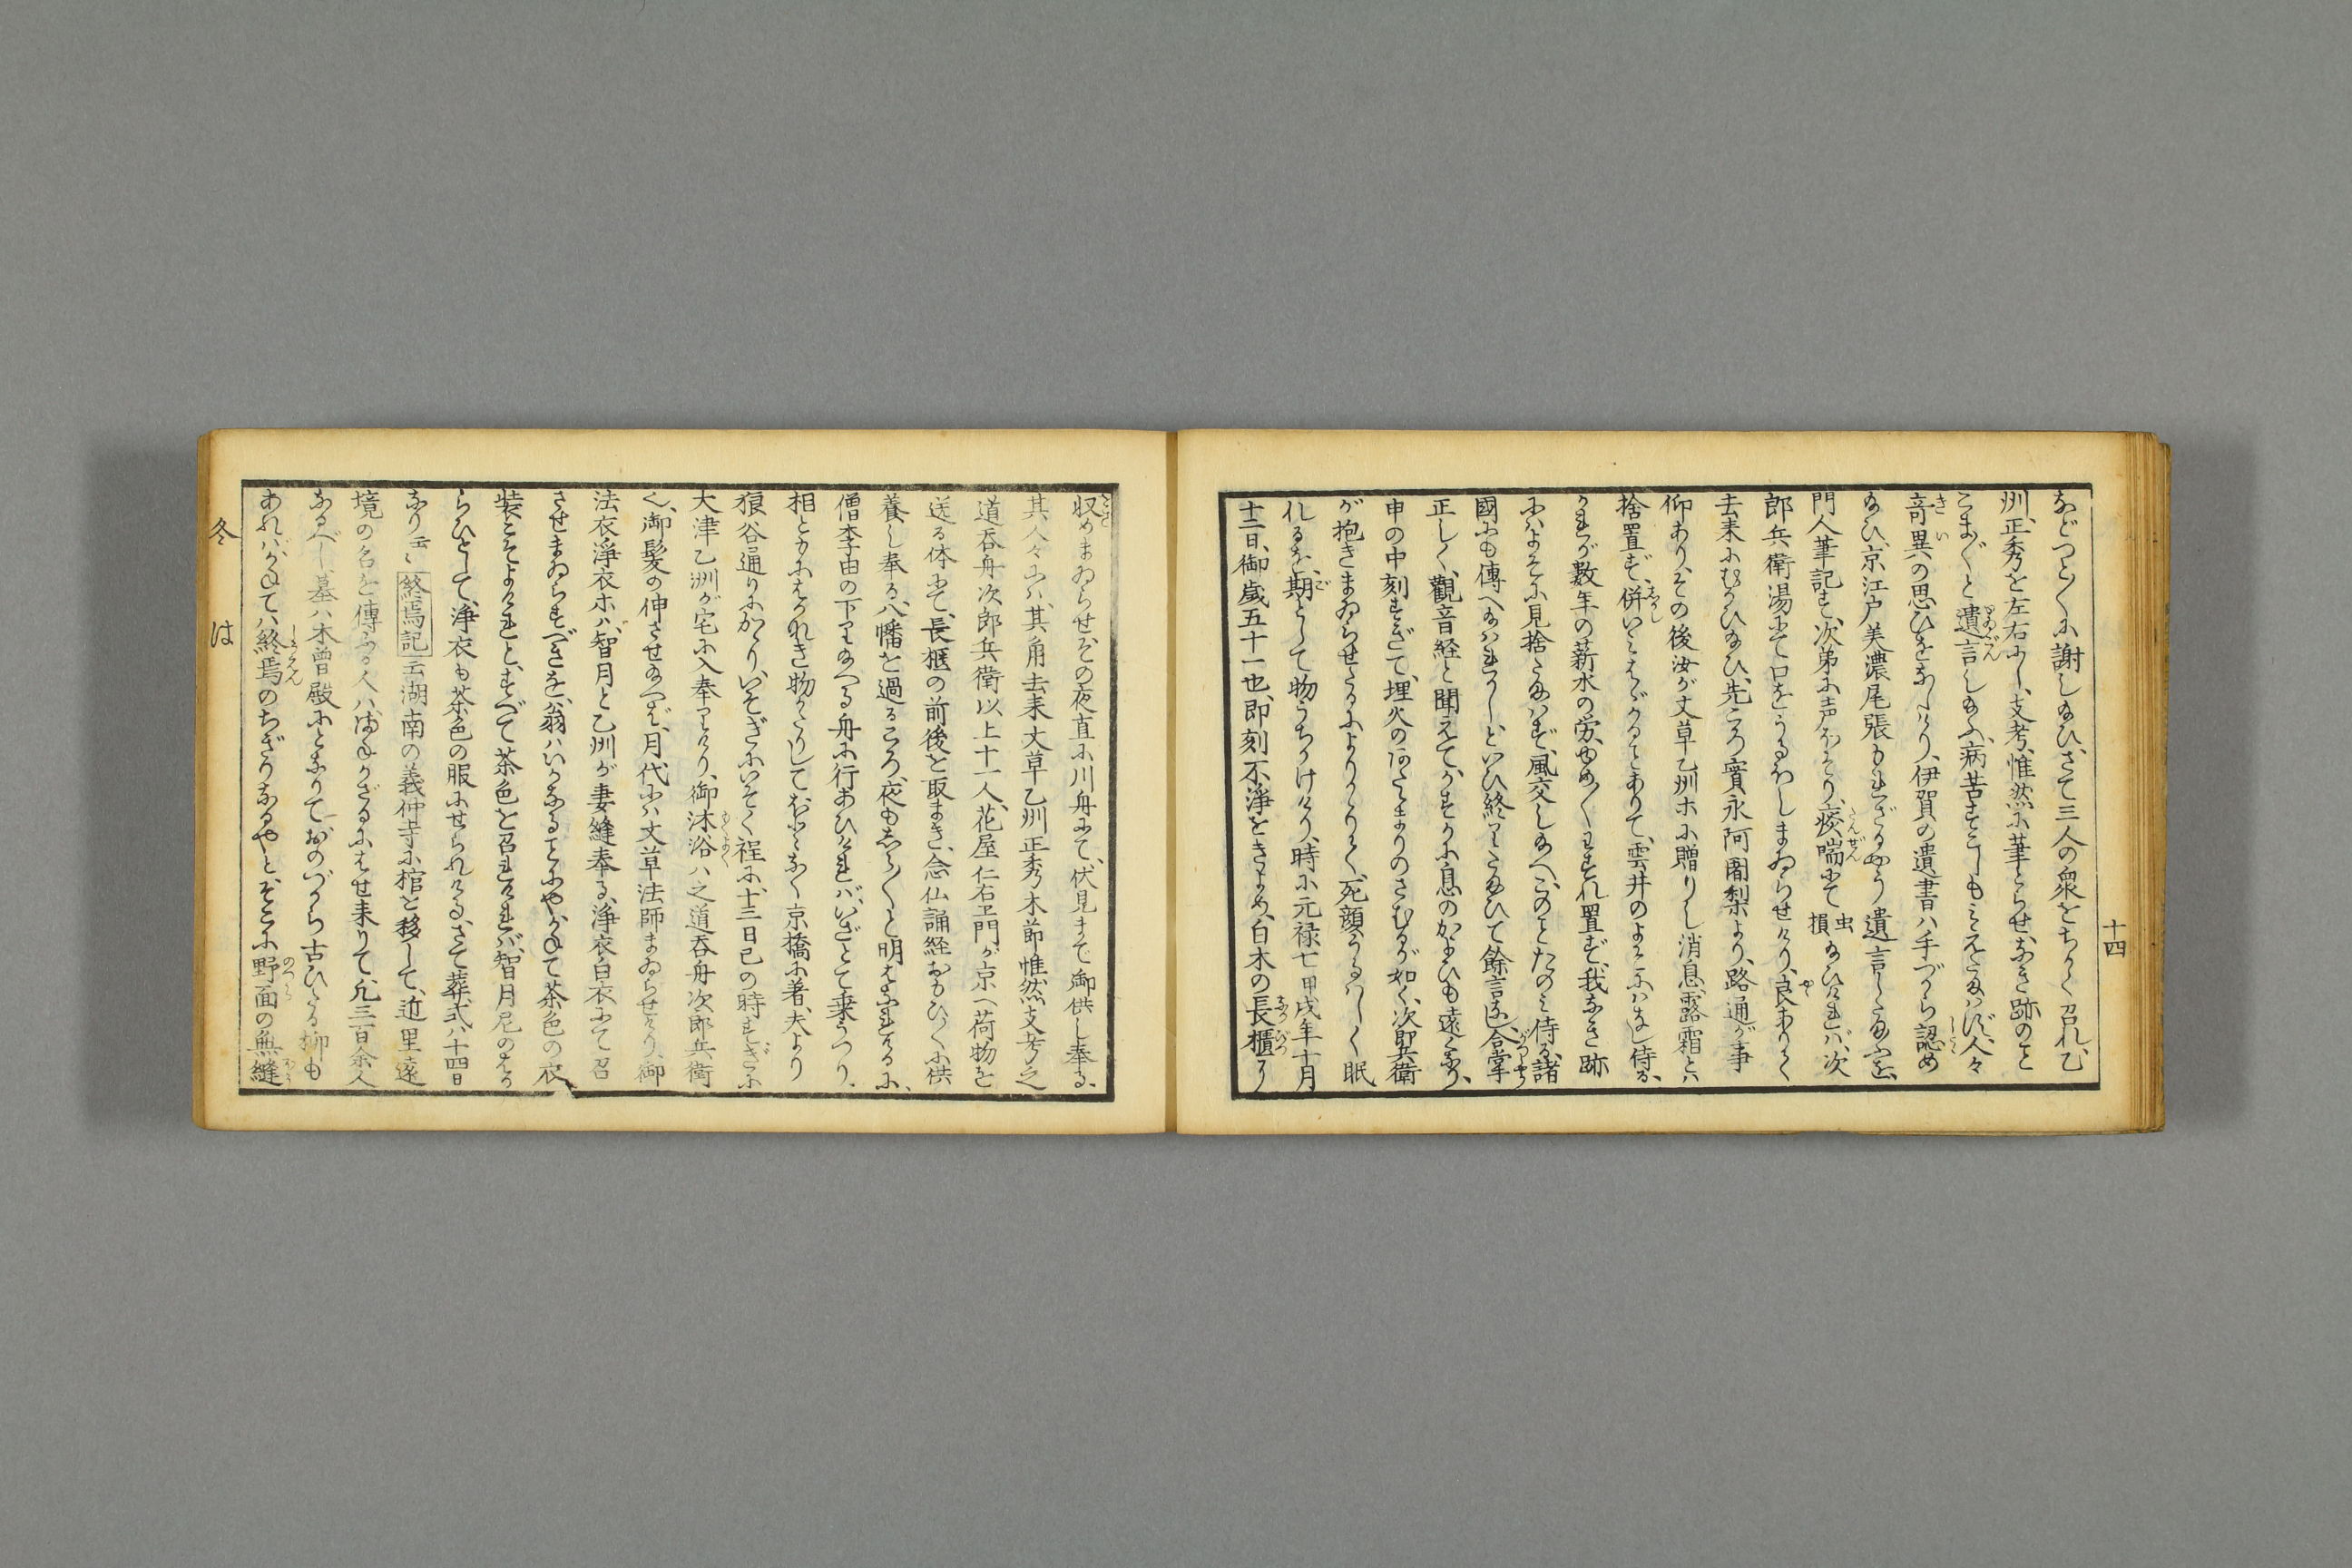 などつど〳〵に謝し給ひ、さて三人の衆をちかく召れ、乙
州、正秀を左右にし、支考、惟然に筆とらせ、なき跡のこと
こまごと遺言し給ふ、病苦すこしもみえたまはず、人々
奇異の思ひをなしたり、伊賀の遺書ハ手づから認め
給ひ、京江戸美濃尾張もれざるやう遺言したまふを、
門人筆記す、次第に声ほそり、痰喘にて虫損給ひければ、次
郎兵衛湯にて口をうるほしまゐらせけり、良ありて
去来にむかひ給ひ、先ころ實永阿闍梨より、路通が事
仰あり、その後汝が丈草乙州ホに贈りし消息、露霜とハ
捨置ず、併いミはゞかることありて、雲井のよそにハなし侍る、
かれが數年の薪水の労、ゆめ〳〵わすれ置ず、我なき跡
にハよそに見捨たまハず、風交し給へ、このことたのミ侍る、諸
國にも傳へ給はれかしといひ終りたまひて餘言なし、合掌
正しく、觀音経と聞えて、かすかに息のかよひも遠くなり、
申の中刻すぎて、埋火のあたゝまりのさむるが如く、次郎兵衛
が抱きまゐらせたるによりかゝりて、死顔うるハしく眠
れるを、期として物うちかけけり、時に元禄七甲戌年十月
十二日、御歳五十一也、即刻不浄をきよめ、白木の長櫃に
十四
収めまゐらせ、その夜直に川舟にて、伏見まで御供し奉る、
其人々にハ、其角去来丈草乙州正秀木節惟然支考之
道呑舟次郎兵衛以上十一人、花屋仁右ヱ門が京へ荷物を
送る体にて、長櫃の前後を取まき、念仏誦経おもひ〳〵に供
養し奉る、八幡を過るころ、夜もしら〳〵と明はなれけるに、
僧李由の下り給へる舟に行あひければ、いざとて乗うつり、
相ともにはかなき物がたりしてほどなく京橋に着、夫より
狼谷通りにかゝり、いそぎにいそぐ程に、十三日巳の時すぎに
大津乙州が宅に入奉りけり、御沐浴ハ之道呑舟次郎兵衛
也、御髪の伸させ給へバ、月代にハ丈草法師まゐらせけり、御
法衣浄衣ホハ、智月と乙州が妻縫奉る、浄衣白衣にて召
させまゐらすべきを、翁ハいかなることにや、かねて茶色の衣
装こそよけれと、すべて茶色を召ければ、智月尼のはか
らひとして、浄衣も茶色の服にせられける、さて葬式ハ十四日
なり云々終焉記云湖南の義仲寺に棺を移して、近里遠
境の名を傳ふる人ハ、まねかざるにはせ来りて、凡三百余人
なるべし、墓ハ木曽殿ととなりて、おのづから古びたる柳も
あれバ、かねてハ終焉のちぎりなるやと、そこに野面の無縫
冬
は